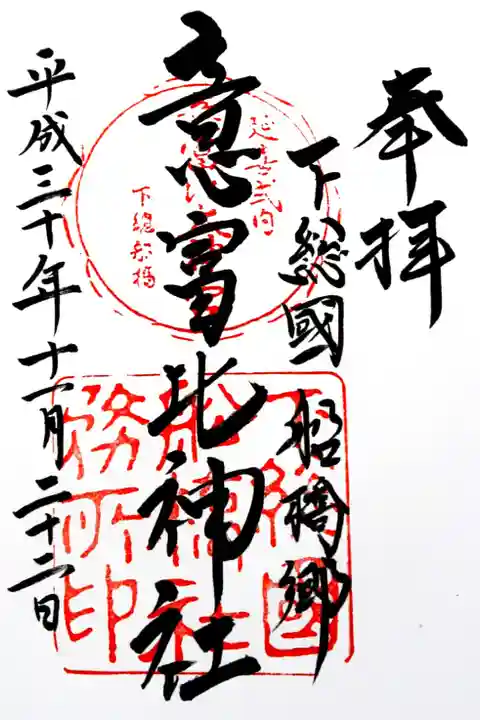 奉拝
下総國 船橋郷
意富比神社
平成三十年十一月二十二日
延喜式内
下總船橋
下總國
船橋社
務所印